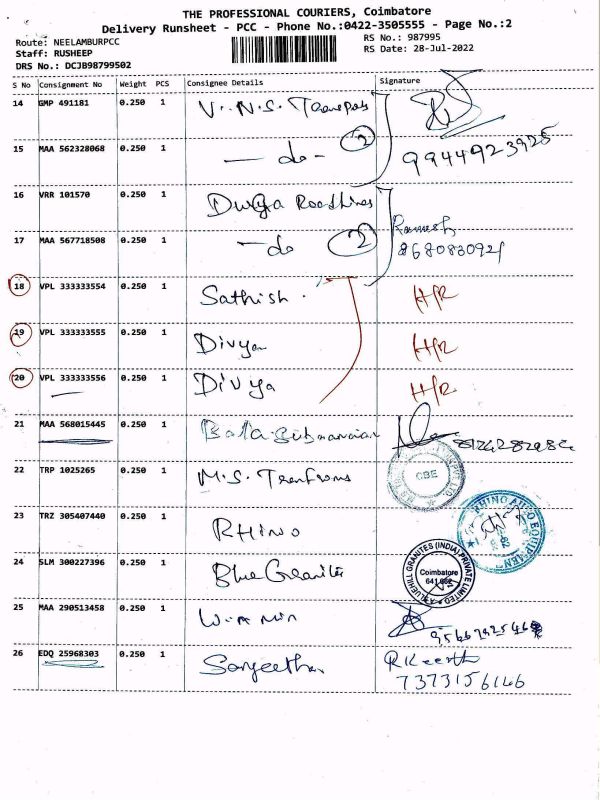 THE PROFESSIONAL COURIERS, Coimbatore
Delivery Runsheet - PCC - Phone No.:0422-3505555 - Page No.:2
Route: NEELAMBURPCC
Staff: RUSHEEP
DRS No.: DCJB98799502
RS No.: 987995
RS Date: 28-Jul-2022
S No Consignment No Weight PCS Consignee Details Signature
14 GMP 491181 0.250 1 V.N.S. Transports
15 MAA 562328068 0.250 1 - do - 2 9944923925
16 VRR 101570 0.250 1 Durga Roadlines
17 MAA 567718508 0.250 1 - do 2 Ramesh 8680830921
18 VPL 333333554 0.250 1 Sathish. H/R
19 VPL 333333555 0.250 1 Divya H/R
20 VPL 333333556 0.250 1 Divya H/R
21 MAA 568015445 0.250 1 Balasubramanian
22 TRP 1025265 0.250 1 M.S. CBE
23 TRZ 305407440 0.250 1 RHINO
24 SLM 300227396 0.250 1 Blue Granites
BLUEHILL GRANITES (INDIA) PRIVATE LIMITED
Coimbatore
25 MAA 290513458 0.250 1
26 EDQ 25968303 0.250 1 Sangeetha RKeerth
7373156146